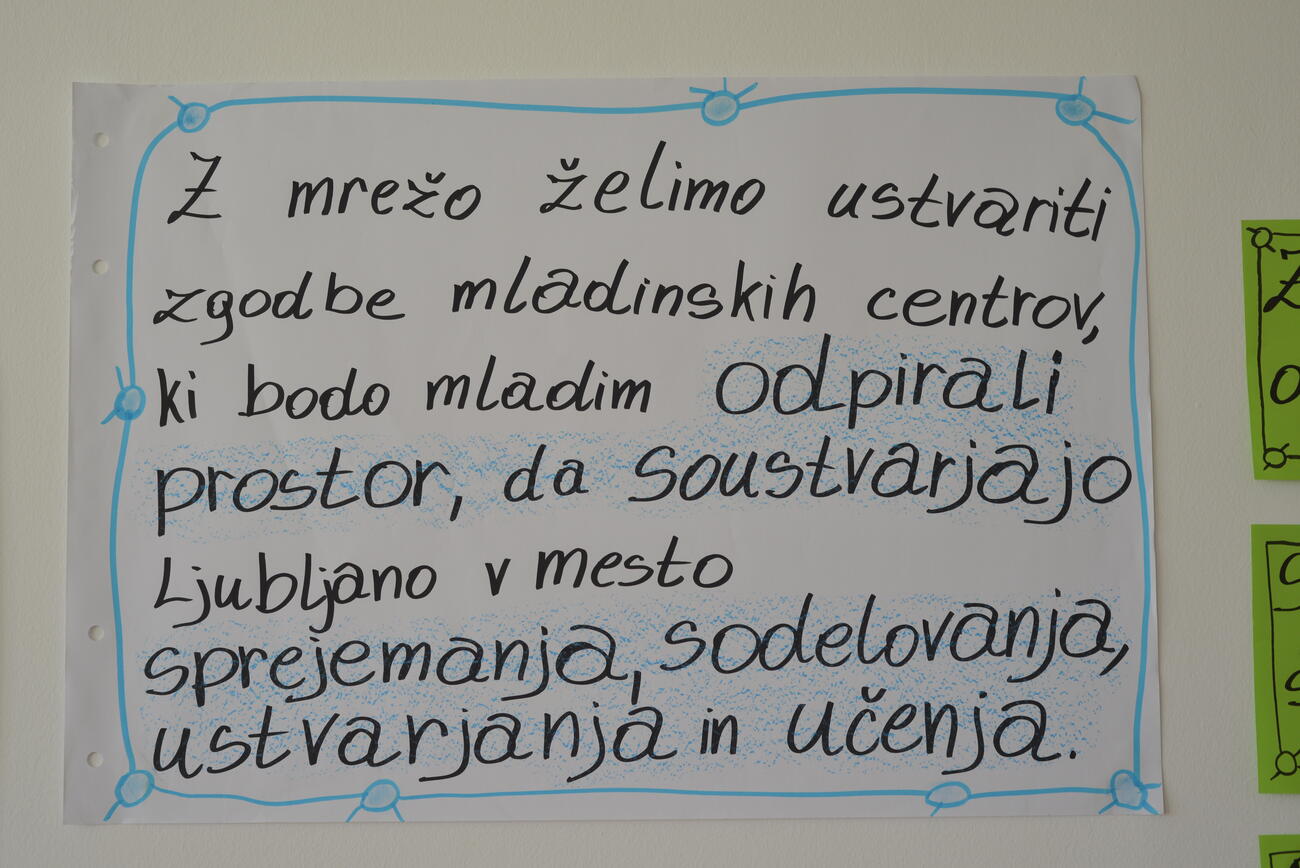 Z mrežo želimo ustvariti
zgodbe mladinskih centrov,
ki bodo mladim odpirali
prostor, da soustvarjajo
Ljubljano v mesto
sprejemanja, sodelovanja,
ustvarjanja in učenja.